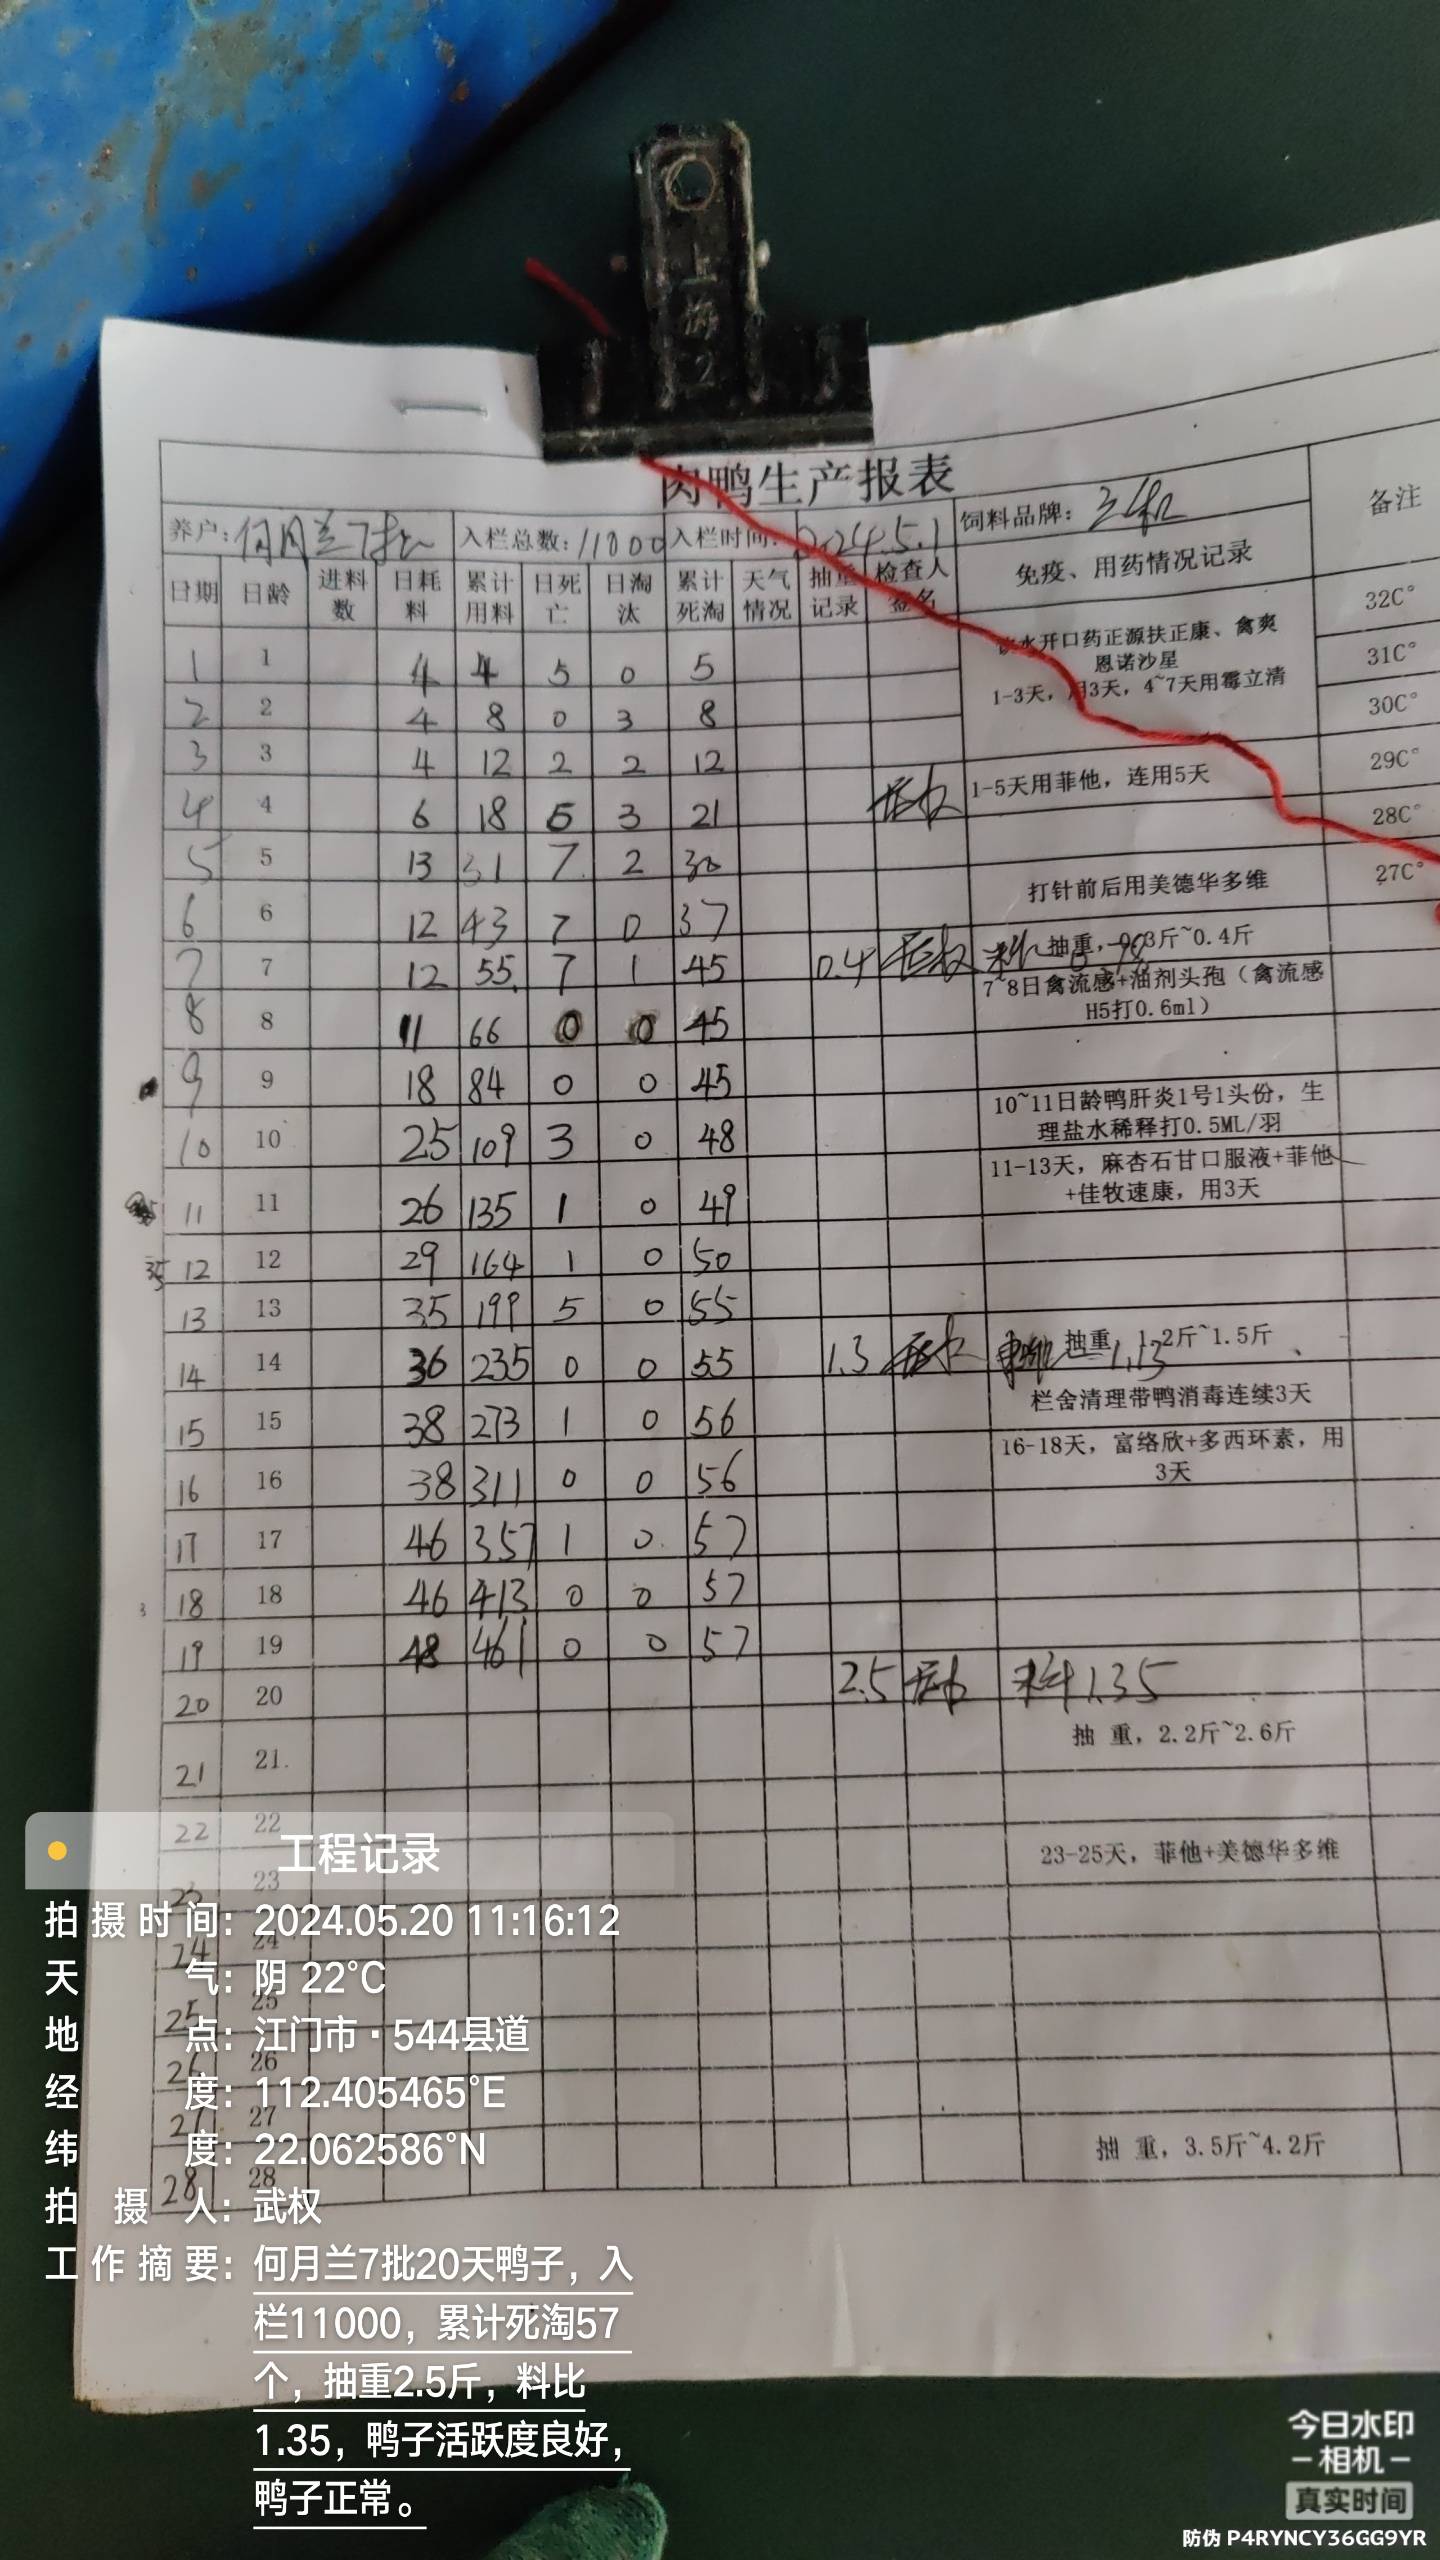 上海
2
肉鸭生产报表
养户：何月兰7批 入栏总数：11000 入栏时间：2024.5.1 饲料品牌： 备注
日期 日龄 进料数 日耗料 累计用料 日死亡 日淘汰 累计死淘 天气情况 抽重记录 检查人签名 免疫、用药情况记录 32C°
1 1 4 4 5 0 5 饮水开口药正源扶正康、禽爽 31C°
恩诺沙星
2 2 4 8 0 3 8 1-3天，用3天，4~7天用霉立清 30C°
3 3 4 12 2 2 12 29C°
4 4 6 18 5 3 21 1-5天用菲他，连用5天 28C°
5 5 13 31 7 2 30 27C°
6 6 12 43 7 0 37 打针前后用美德华多维
7 7 12 55 7 1 45 0.4 抽重，0.3斤~0.4斤
8 8 11 66 0 0 45 7~8日禽流感+油剂头孢（禽流感
H5打0.6ml）
9 9 18 84 0 0 45
10 10 25 109 3 0 48 10~11日龄鸭肝炎1号1头份，生
理盐水稀释打0.5ML/羽
11 11 26 135 1 0 49 11-13天，麻杏石甘口服液+菲他
+佳牧速康，用3天
12 12 29 164 1 0 50
13 13 35 199 5 0 55
14 14 36 235 0 0 55 1.3 抽重，1.2斤~1.5斤 1.13
15 15 38 273 1 0 56 栏舍清理带鸭消毒连续3天
16 16 38 311 0 0 56 16-18天，富络欣+多西环素，用
3天
17 17 46 357 1 0 57
18 18 46 413 0 0 57
19 19 48 461 0 0 57
20 20 2.5 料1.35
21 21. 抽 重，2.2斤~2.6斤
22 22
23 23 23-25天，菲他+美德华多维
24 24
25 25
26 26
27 27
28 28 抽 重，3.5斤~4.2斤
工程记录
拍摄时间：2024.05.20 11:16:12
天气：阴 22°C
地点：江门市·544县道
经度：112.405465°E
纬度：22.062586°N
拍摄人：武权
工作摘要：何月兰7批20天鸭子，入
栏11000，累计死淘57
个，抽重2.5斤，料比
1.35，鸭子活跃度良好，
鸭子正常。
今日水印
相机
真实时间
防伪 P4RYNCY36GG9YR